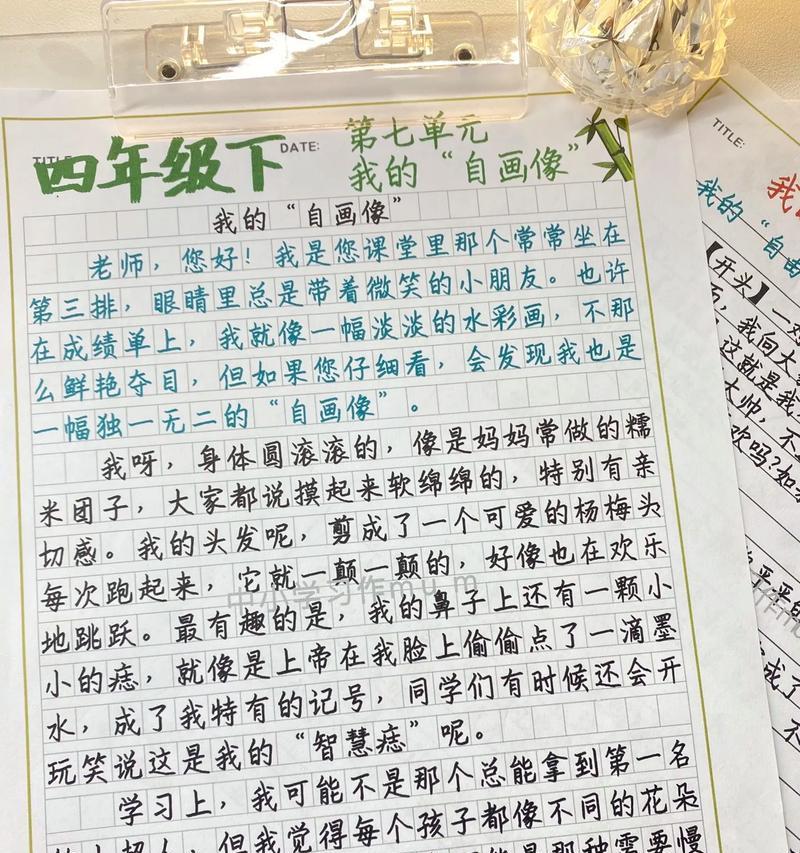 TITLE:
四年级下
DATE:
第七单元
我的“自画像”
我的“自画像”
老师，您好！我是您课堂里那个常常坐在
第三排，眼睛里总是带着微笑的小朋友。也许
在成绩单上，我就像一幅淡淡的水彩画，不那
么鲜艳夺目，但如果您仔细看，会发现我也是
一幅独一无二的“自画像”。
我呀，身体圆滚滚的，像是妈妈常做的糯
米团子，大家都说摸起来软绵绵的，特别有亲
切感。我的头发呢，剪成了一个可爱的杨梅头
每次跑起来，它就一颠一颠的，好像也在欢乐
地跳跃。最有趣的是，我的鼻子上还有一颗小
小的痣，就像是上帝在我脸上偷偷点了一滴墨
水，成了我特有的记号，同学们有时候还会开
玩笑说这是我的“智慧痣”呢。
学习上，我可能不是那个总能拿到第一名
但我觉得每个孩子都像不同的花朵
中小学习作mum
TITLE:
我的“自画
【开头】一
我向大
这就是我
大帅，不
欢吗？如